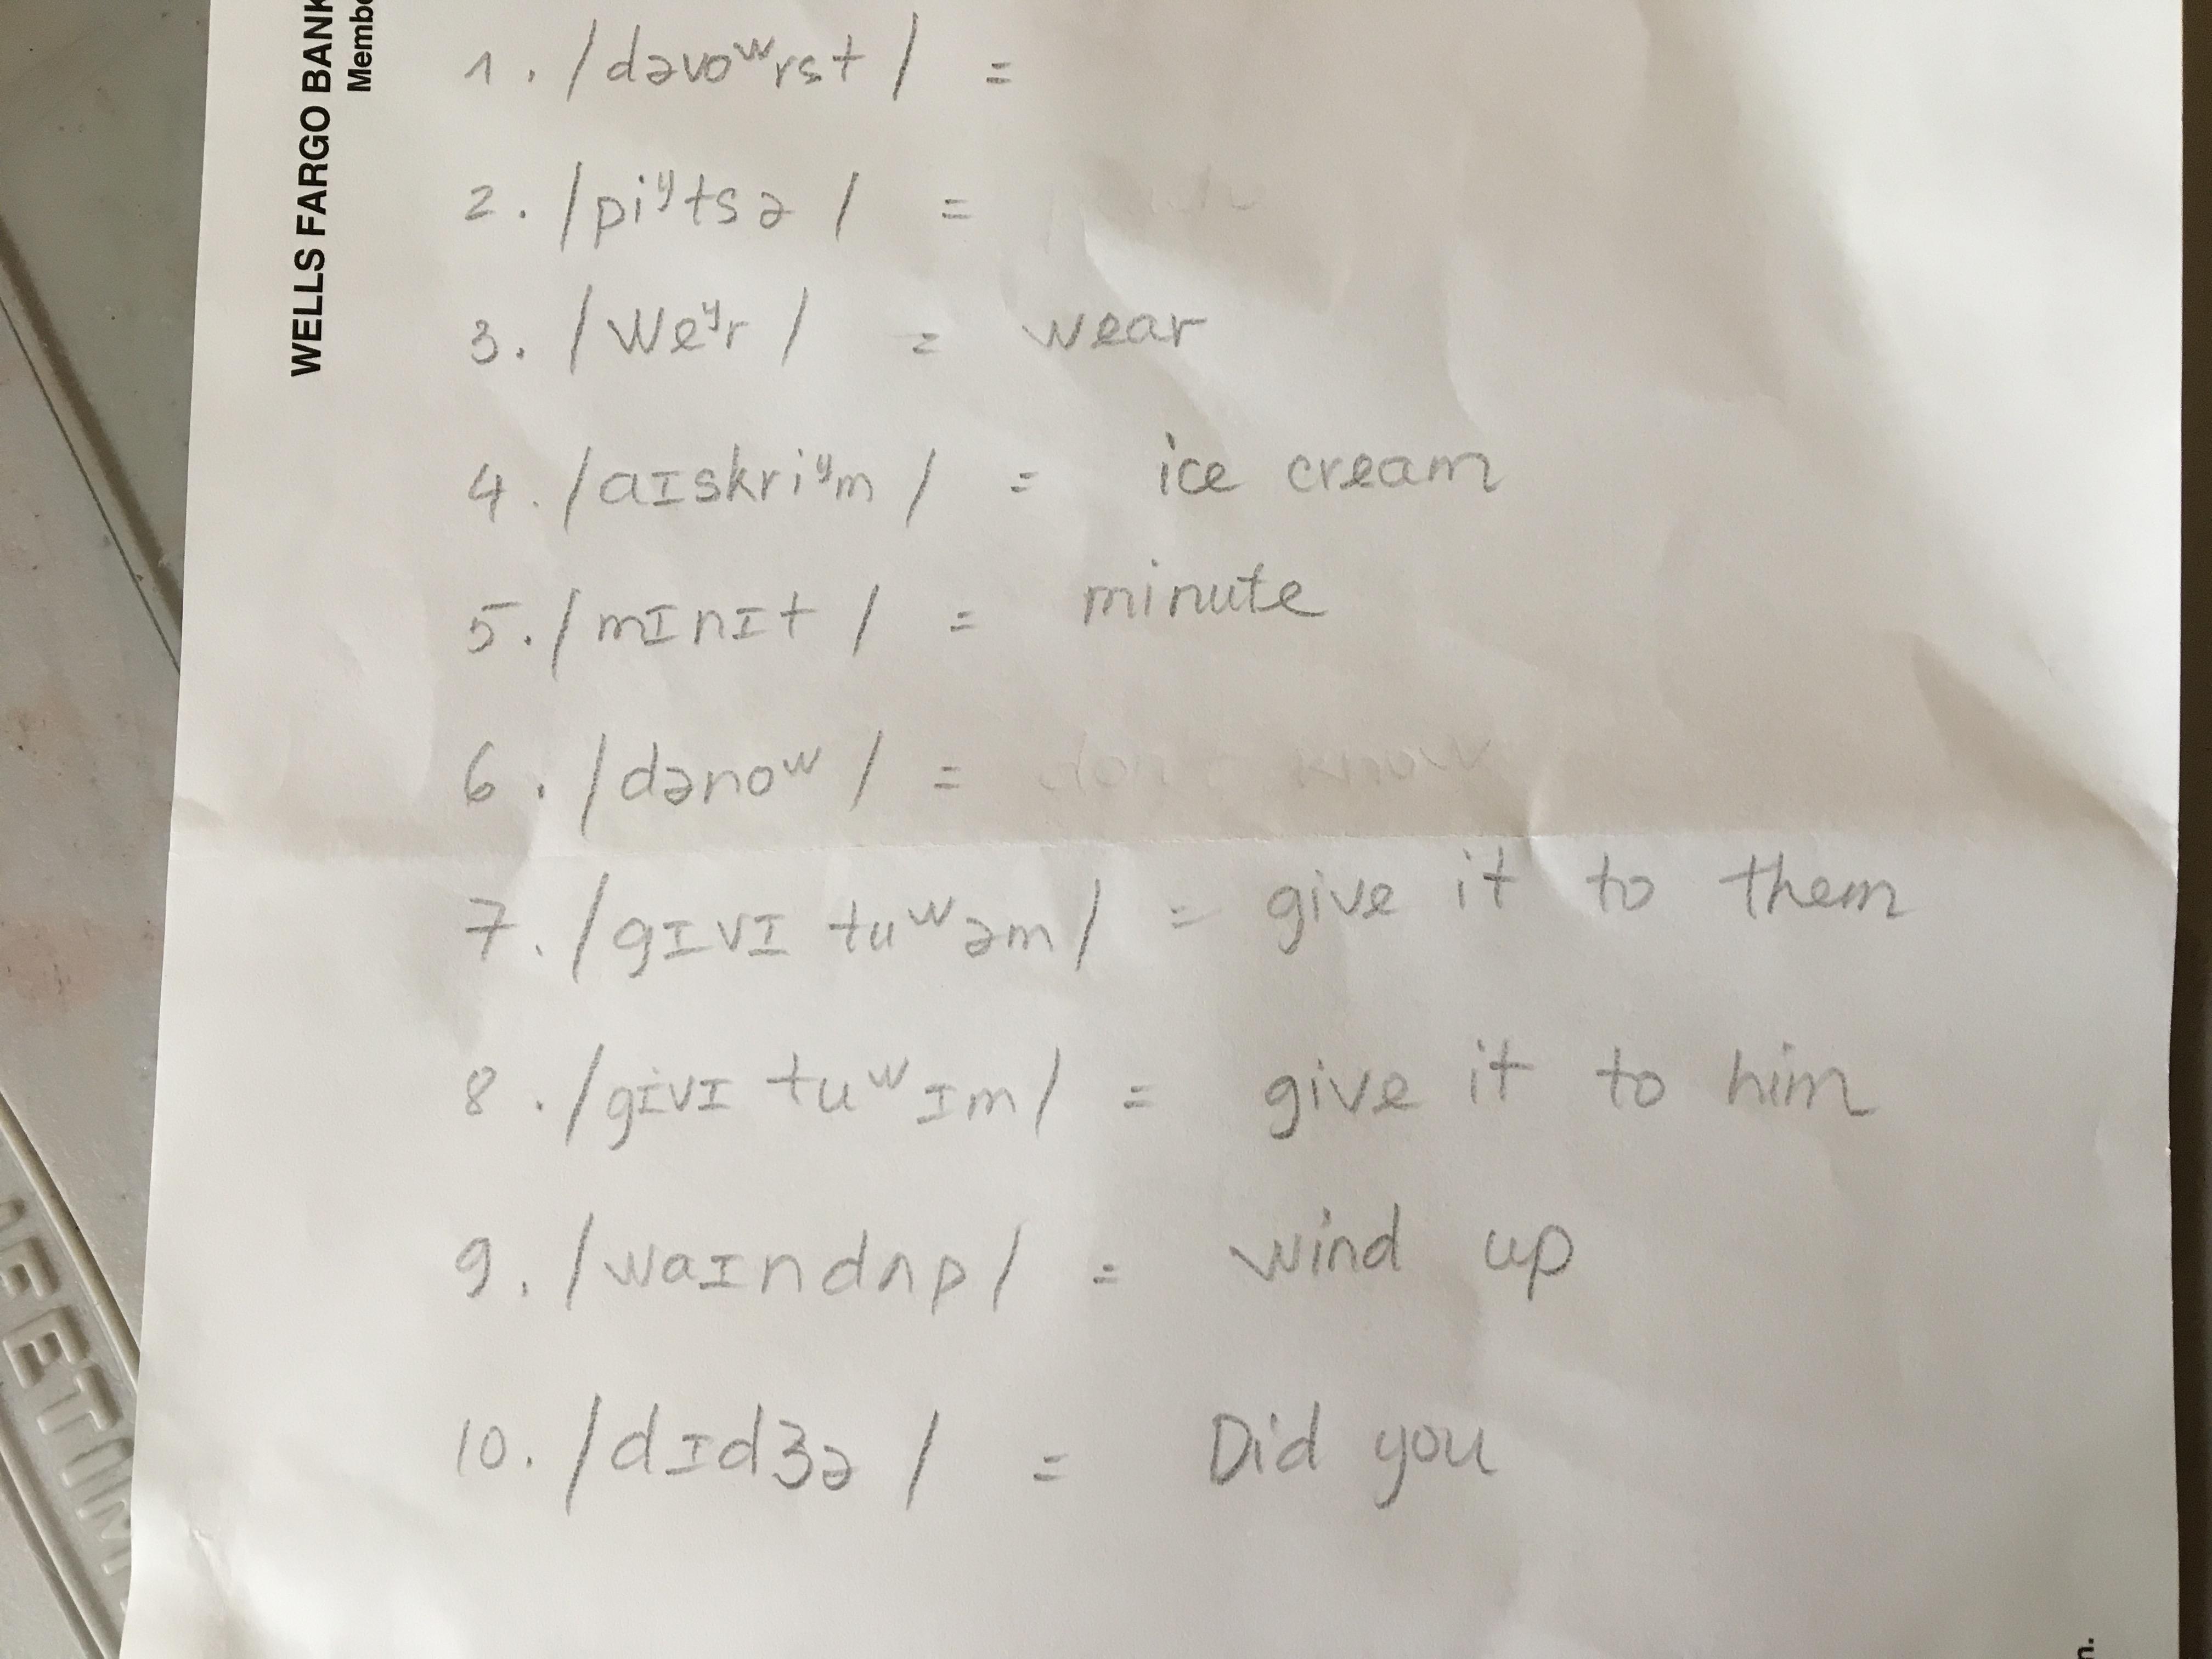 WELLS FARGO BANK
Membe
1. /dəvoʷrst/ =
2. /piʸtsə/ =
3. /weʸr/ = wear
4. /aɪskriʸm/ = ice cream
5. /mɪnɪt/ = minute
6. /dənoʷ/ = don't know
7. /gɪvɪ tuʷəm/ = give it to them
8. /gɪvɪ tuʷɪm/ = give it to him
9. /waɪndʌp/ = wind up
10. /dɪdʒə/ = Did you
n.